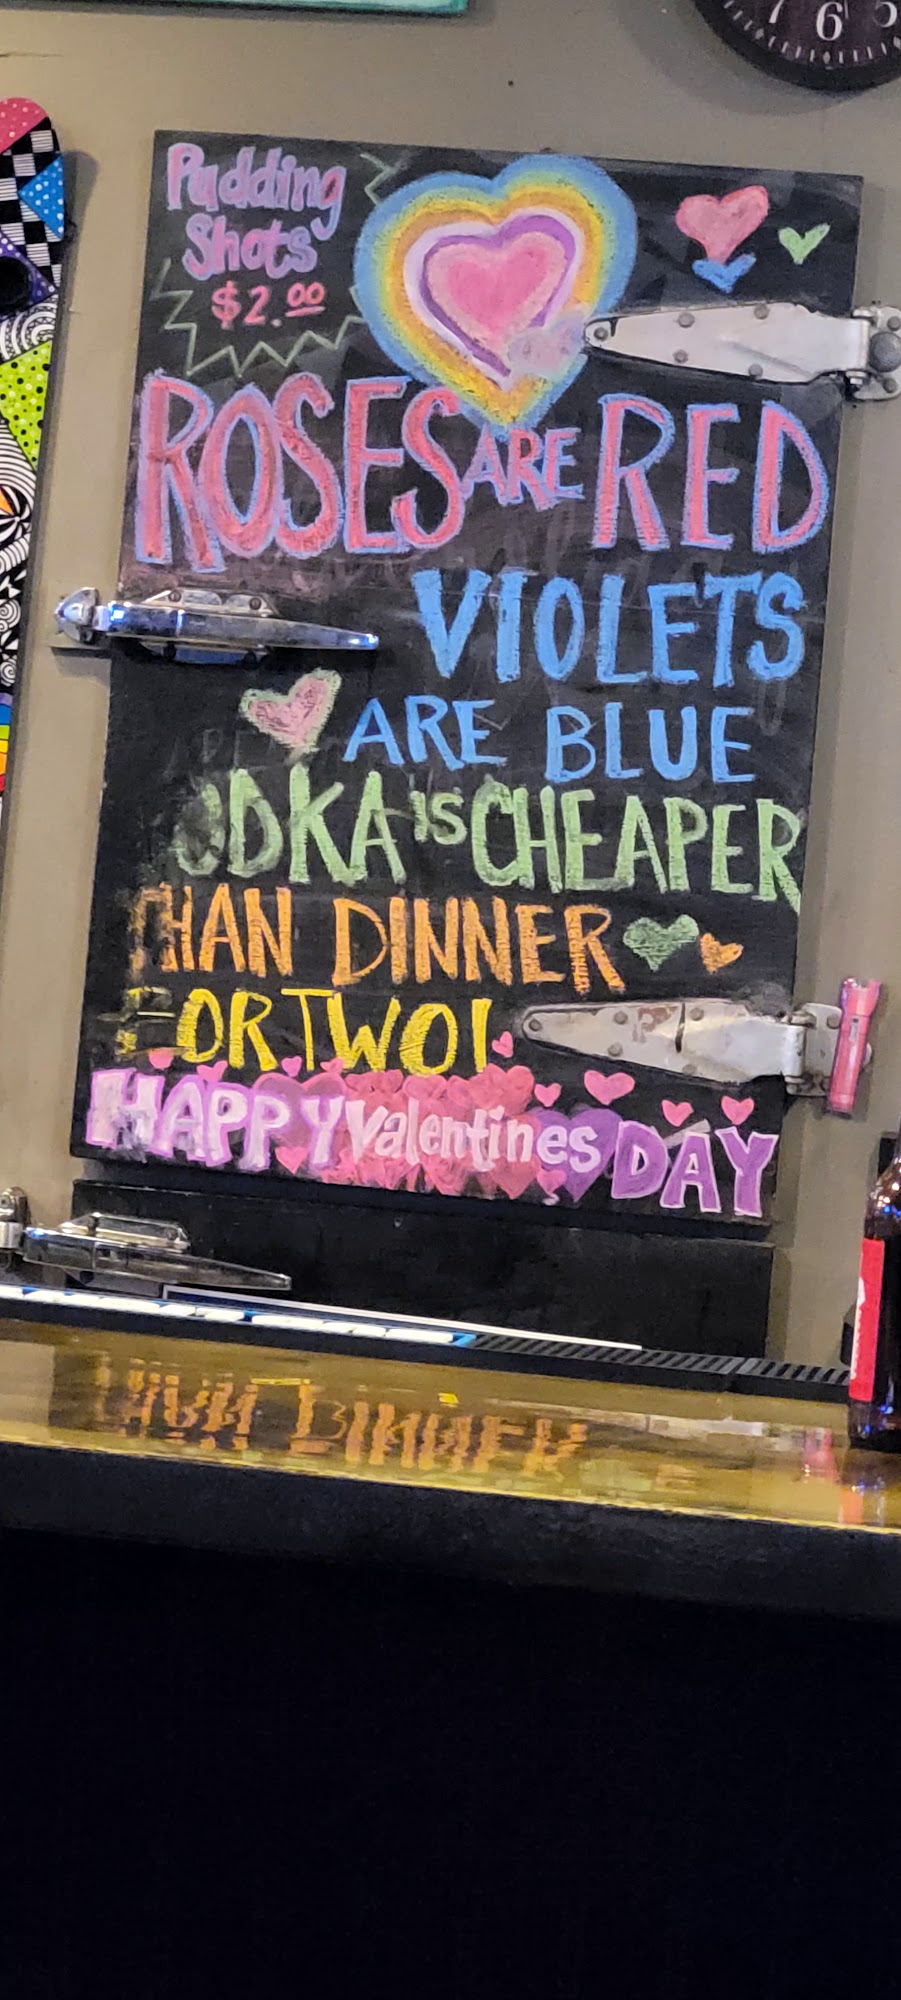 Pudding
Shots
$2.00
ROSES ARE RED
VIOLETS
ARE BLUE
ODKA IS CHEAPER
THAN DINNER
FOR TWO!
HAPPY Valentines DAY
7 6 5